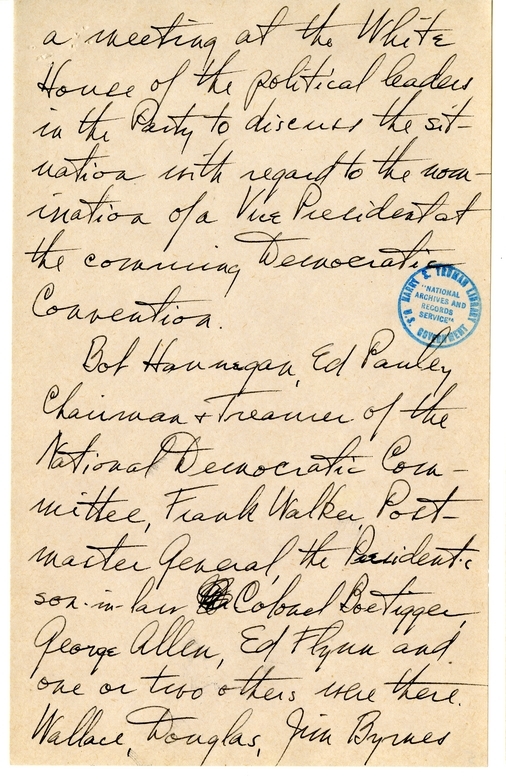 a meeting at the White
House of the political leaders
in the Party to discuss the sit-
uation with regard to the nom-
ination of a Vice President at
the comming Democratic
Convention.
HARRY S. TRUMAN LIBRARY
"NATIONAL
ARCHIVES AND
RECORDS
SERVICE"
U.S. GOVERNMENT
Bob Hannegan, Ed Pauley
Chairman + Treasurer of the
National Democratic Com-
mittee, Frank Walker, Post-
master General, the President's
son-in-law Colonel Boetigger,
George Allen, Ed Flynn and
one or two others were there.
Wallace, Douglas, Jim Byrnes